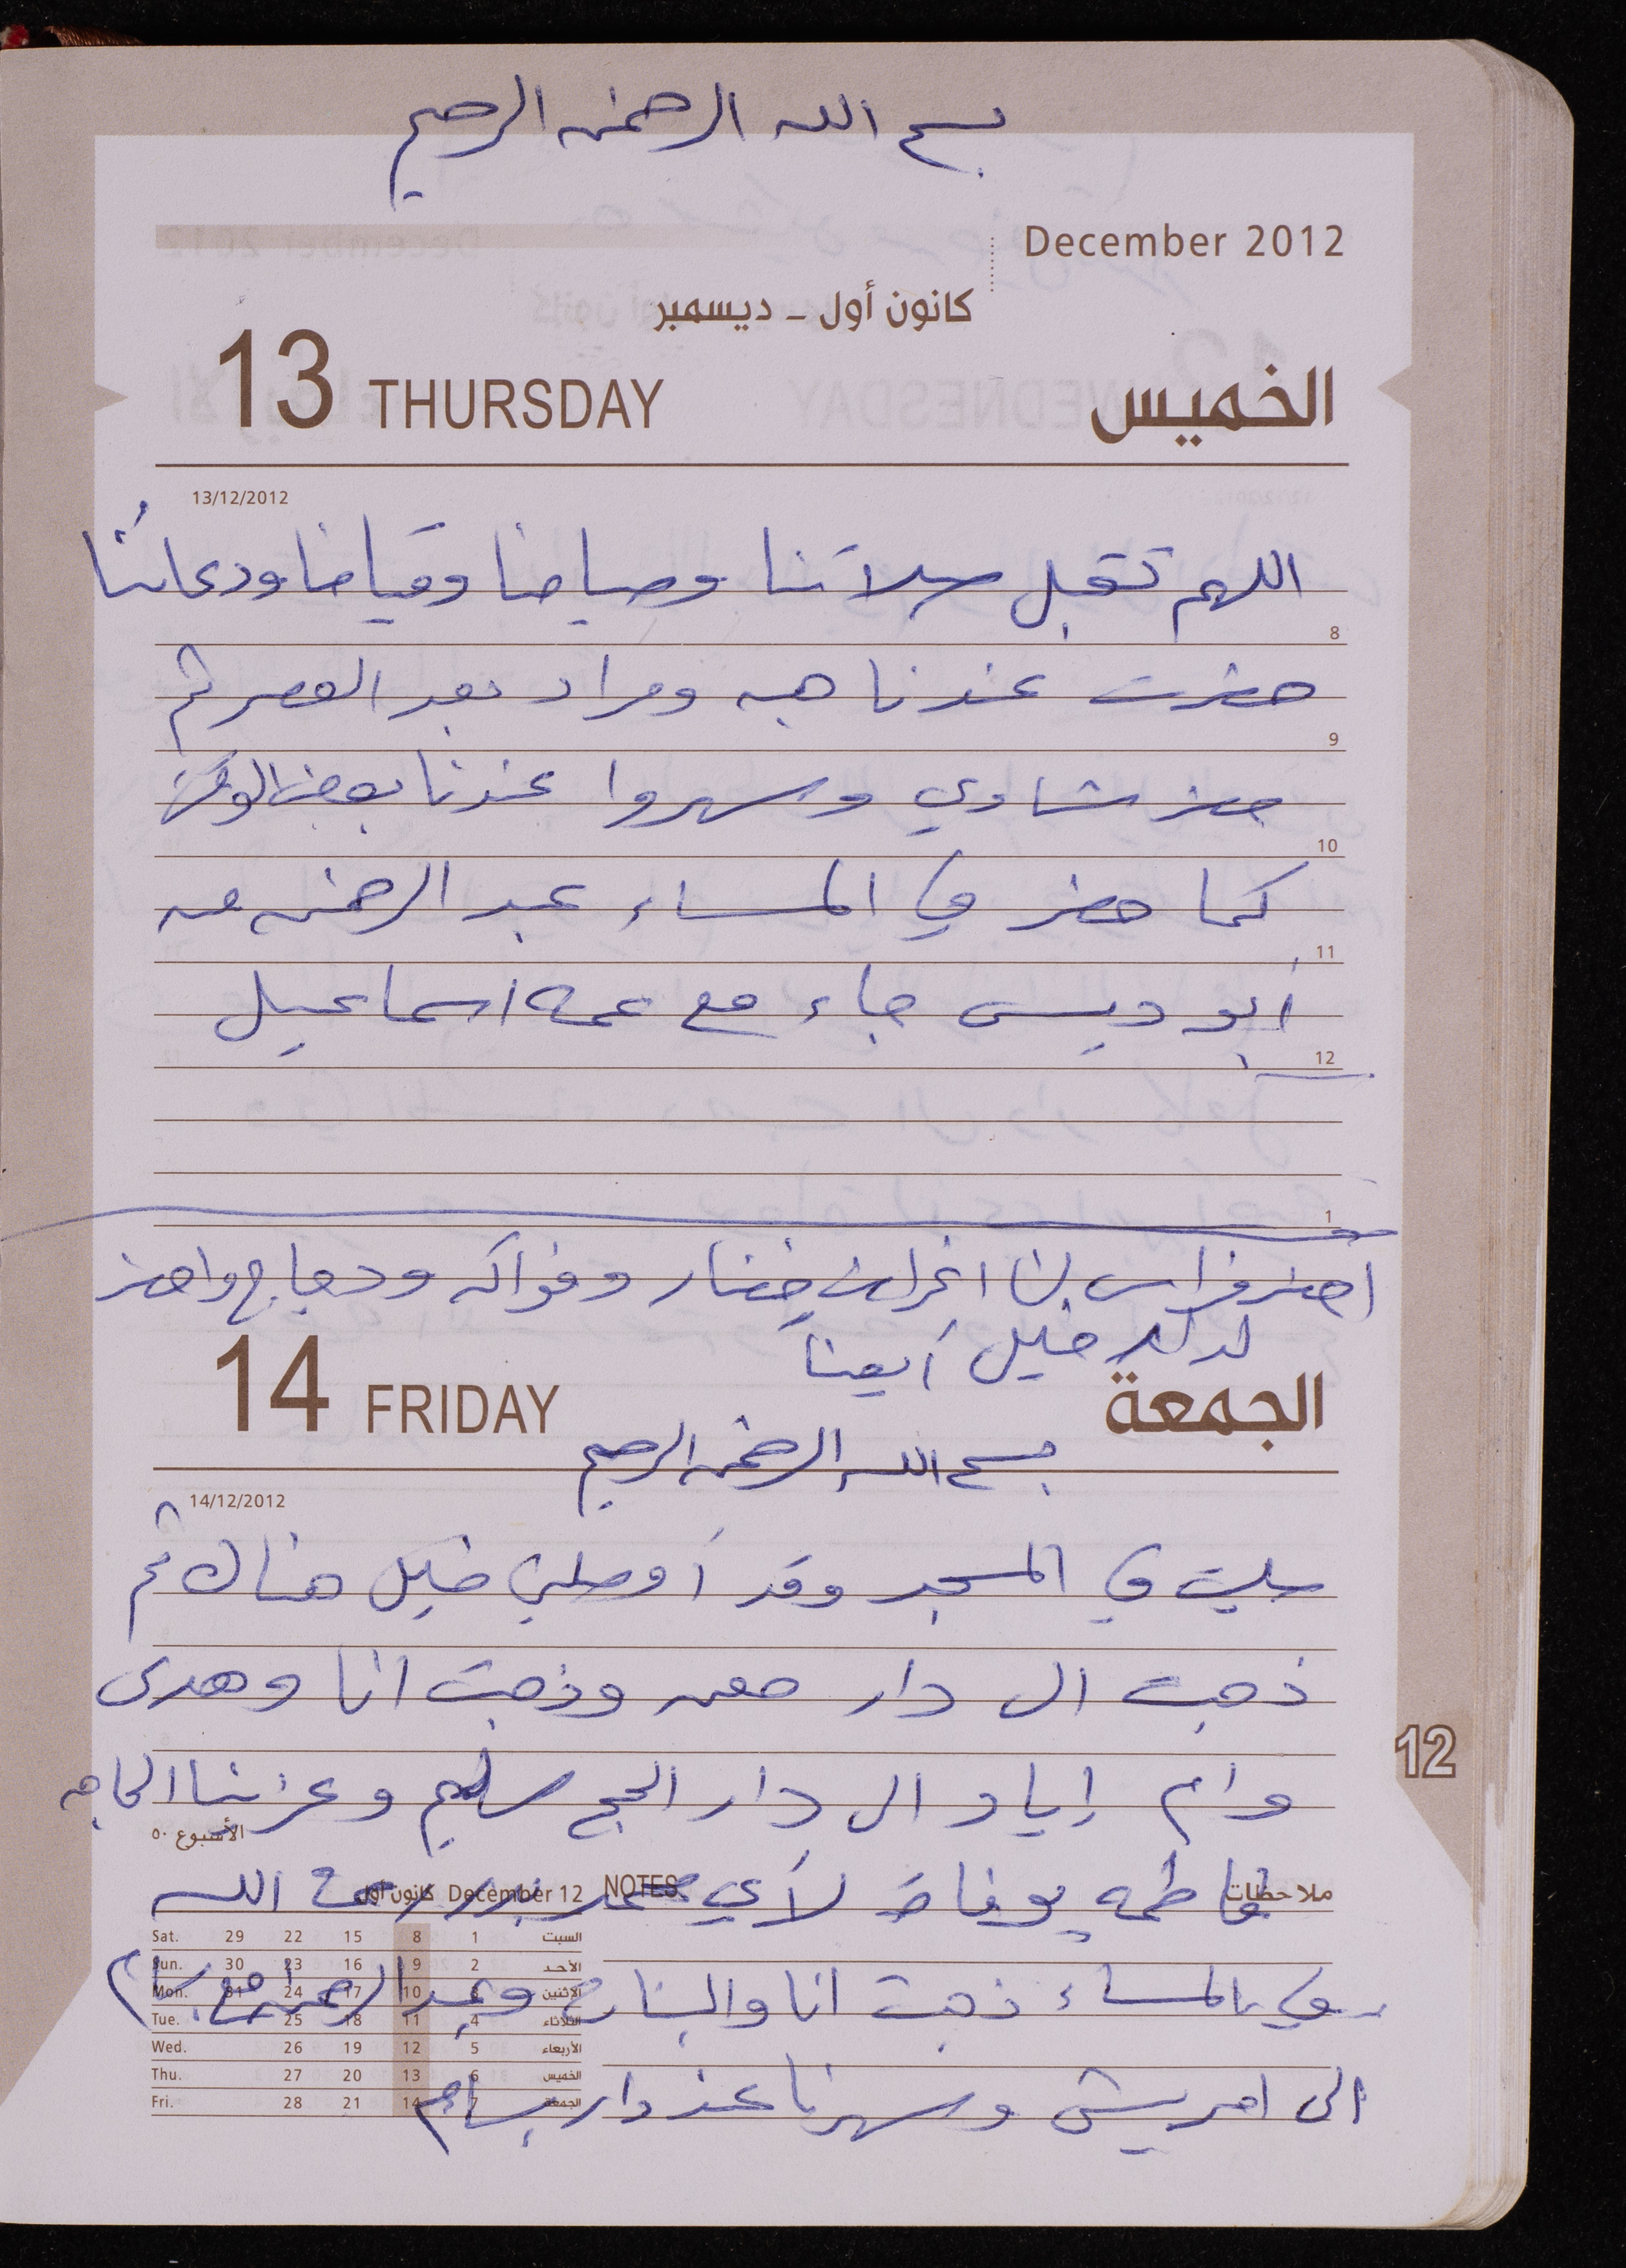 بسم الله الرحمن الرحيم
December 2012
كانون أول - ديسمبر
13 THURSDAY الخميس
13/12/2012
اللهم تقبل صلاتنا وصيامنا وقيامنا ودعائنا
8
حضرت عندنا هبه ومراد بعد العصر ثم
9
حضر شادي وسهروا عندنا بعض الوقت
10
كما حضر في المساء عبد الرحمن من
11
أبو ديس جاء مع عمه اسماعيل
12
1
أحضر فراس لنا اغراض خضار وفواكه ودجاج واحضر
لدار خليل أيضا
14 FRIDAY الجمعة
بسم الله الرحمن الرحيم
14/12/2012
صليت في المسجد وقد أوصلني خليل هناك ثم
ذهبت الى دار معن وذهبت انا وهدى
وام إياد الى دار الحج سليم وعزينا الحاجه
الأسبوع ٥٠
فاطمه بوفاة لأي محمد رحمه الله
ملاحظات NOTES December 12 كانون أول
Sat. 29 22 15 8 1 السبت
Sun. 30 23 16 9 2 الأحد
Mon. 31 24 17 10 الاثنين
Tue. 25 18 11 4 الثلاثاء
Wed. 26 19 12 5 الأربعاء
Thu. 27 20 13 6 الخميس
Fri. 28 21 14 7 الجمعة
وفي المساء ذهبت انا والبنات وعبد الرحمن مع بسام
الى امريش وسهرنا عند دار بسام
12